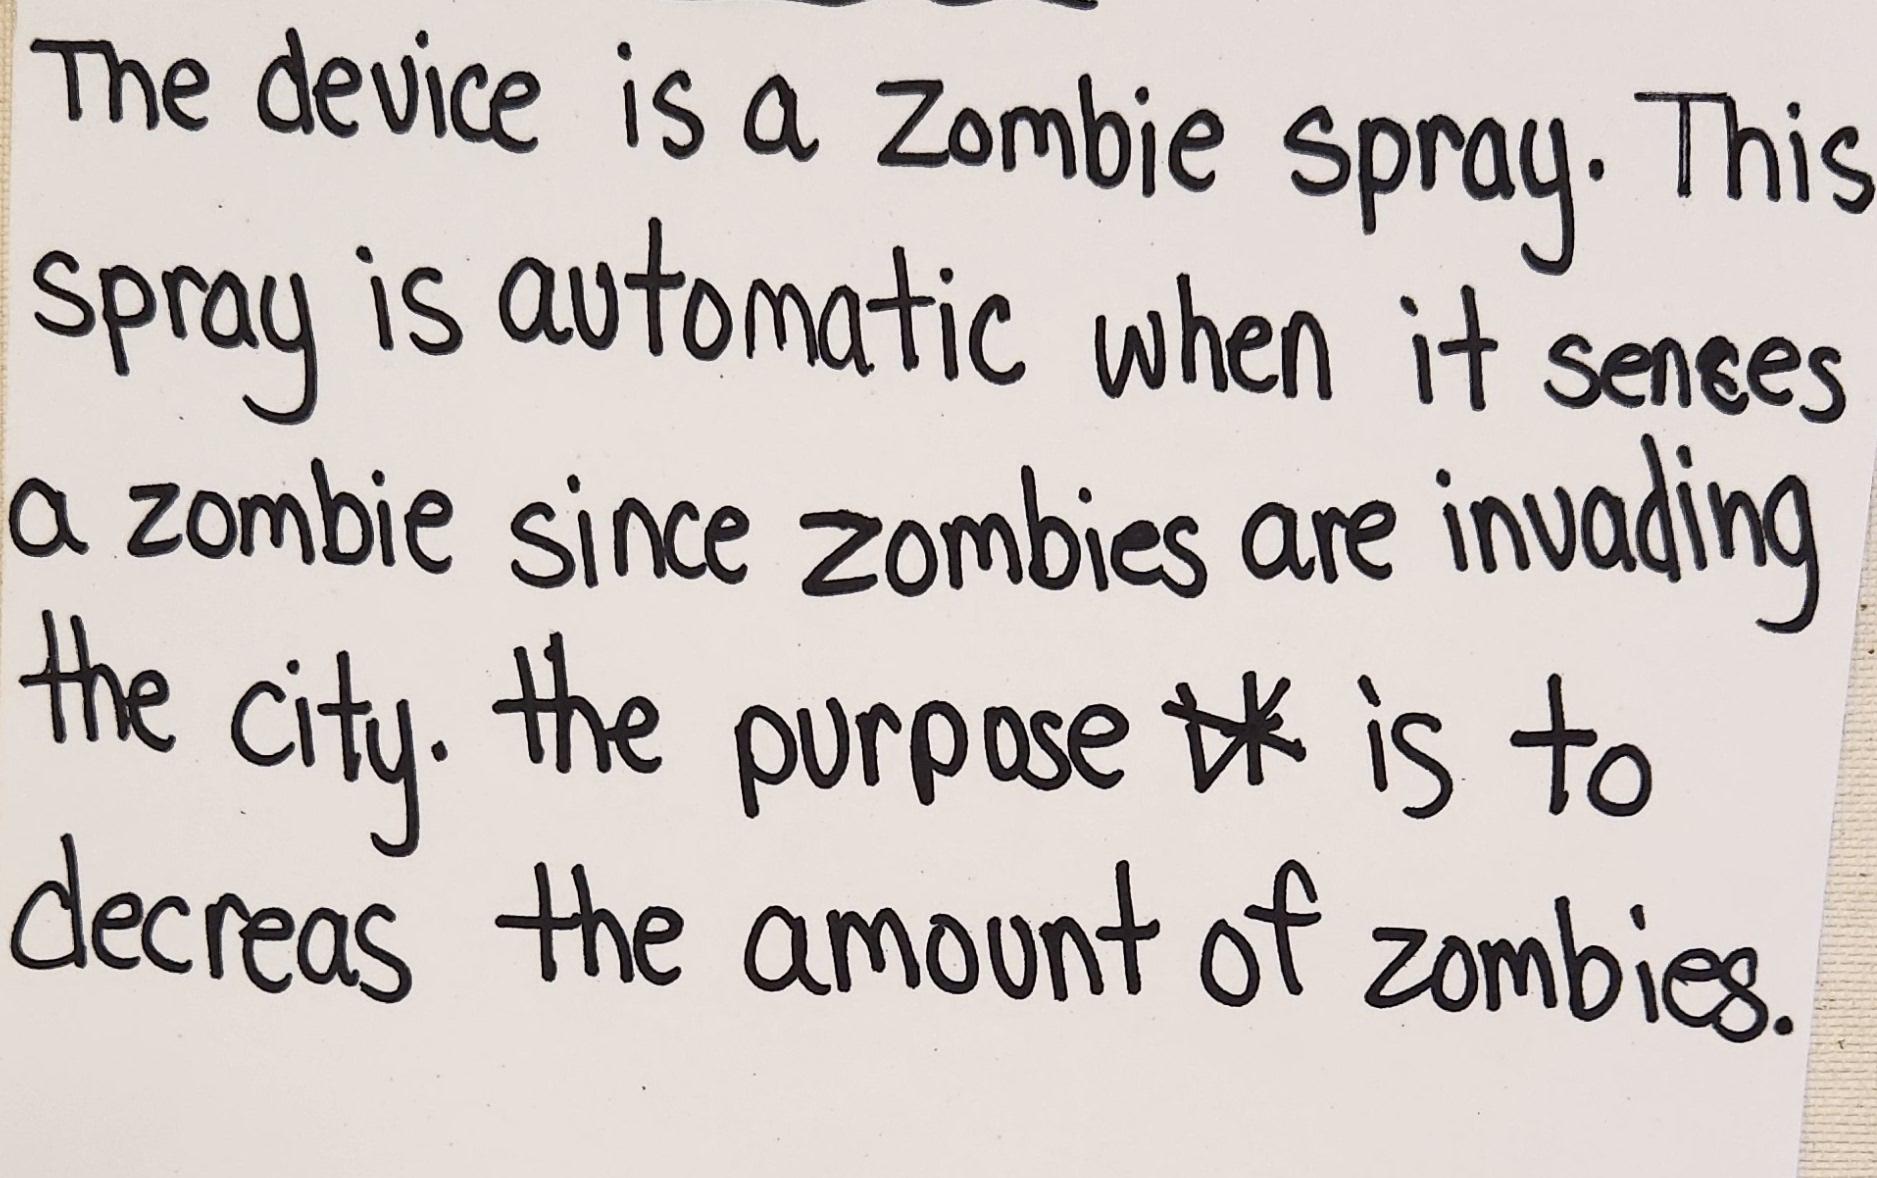 The device is a Zombie spray. This
spray is automatic when it senses
a zombie since zombies are invading
the city. the purpose is to
decreas the amount of zombies.